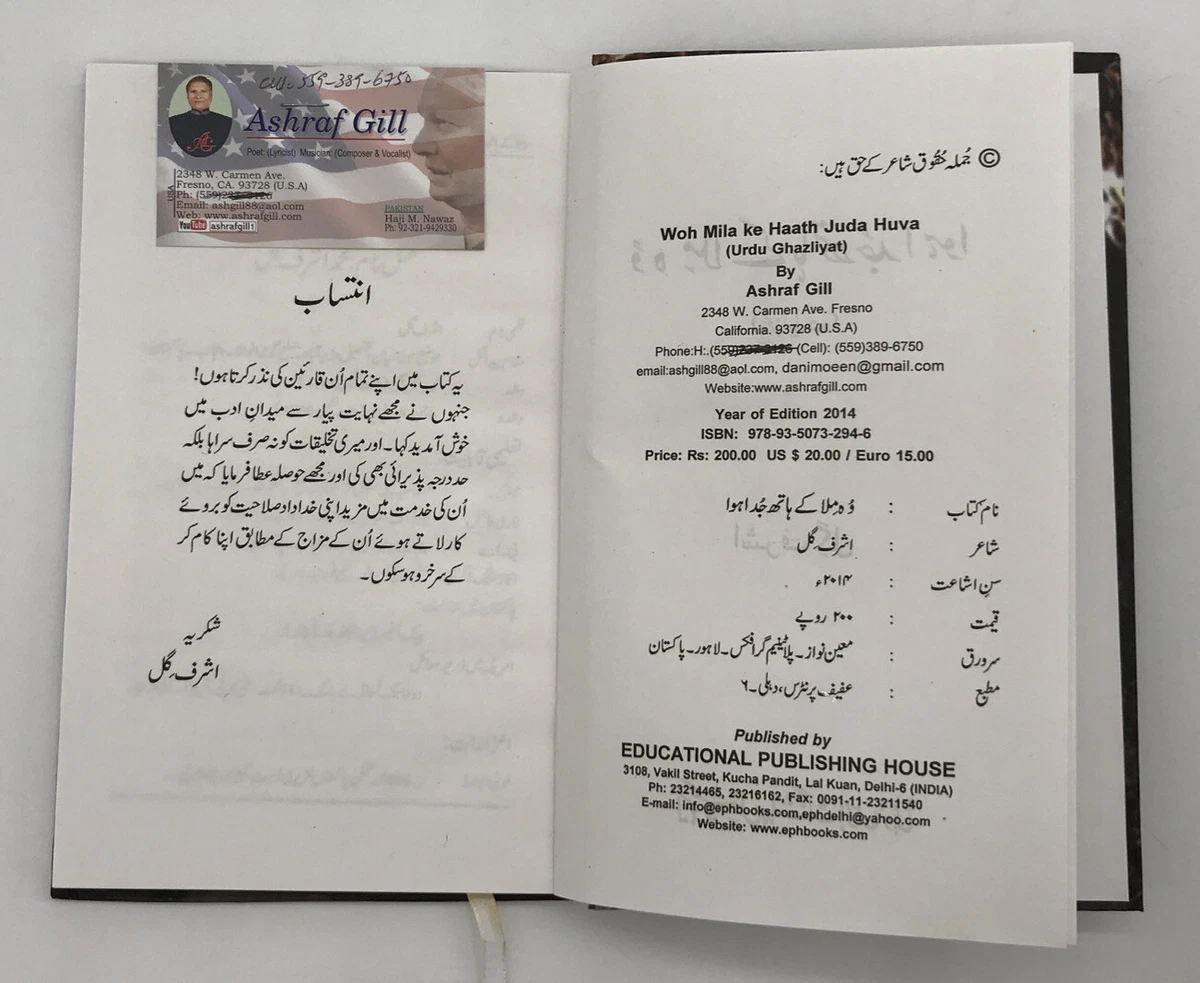 Cell: 559-389-6750
Ashraf Gill
Poet: (Lyricist) Musician: (Composer & Vocalist)
USA
2348 W. Carmen Ave.
Fresno, CA. 93728 (U.S.A)
Ph: (559)
Email: ashgill88@aol.com
Web: www.ashrafgill.com
YouTube ashrafgill1
PAKISTAN
Haji M. Nawaz
Ph: 92-321-9429330
انتساب
یہ کتاب میں اپنے تمام اُن قارئین کی نذر کرتا ہوں!
جنہوں نے مجھے نہایت پیار سے میدانِ ادب میں
خوش آمدید کہا۔ اور میری تخلیقات کو نہ صرف سراہا بلکہ
حد درجہ پذیرائی بھی کی اور مجھے حوصلہ عطا فرمایا کہ میں
اُن کی خدمت میں مزید اپنی خداداد صلاحیت کو بروئے
کار لاتے ہوئے اُن کے مزاج کے مطابق اپنا کام کر
کے سرخرو ہو سکوں۔
شکریہ
اشرف گِل
© جُملہ حقُوق شاعر کے حق ہیں:
Woh Mila ke Haath Juda Huva
(Urdu Ghazliyat)
By
Ashraf Gill
2348 W. Carmen Ave. Fresno
California. 93728 (U.S.A)
Phone:H:.(559)237-8126 (Cell): (559)389-6750
email:ashgill88@aol.com, danimoeen@gmail.com
Website:www.ashrafgill.com
Year of Edition 2014
ISBN: 978-93-5073-294-6
Price: Rs: 200.00 US $ 20.00 / Euro 15.00
نام کتاب : وُہ مِلا کے ہاتھ جُدا ہوا
شاعر : اشرف گِل
سنِ اشاعت : ۲۰۱۴ء
قیمت : ۲۰۰ روپے
سرورق : معین نواز۔ پلاٹینیم گرافکس۔ لاہور۔ پاکستان
مطبع : عفیف پرنٹرس، دہلی۔۶
Published by
EDUCATIONAL PUBLISHING HOUSE
3108, Vakil Street, Kucha Pandit, Lal Kuan, Delhi-6 (INDIA)
Ph: 23214465, 23216162, Fax: 0091-11-23211540
E-mail: info@ephbooks.com,ephdelhi@yahoo.com
Website: www.ephbooks.com